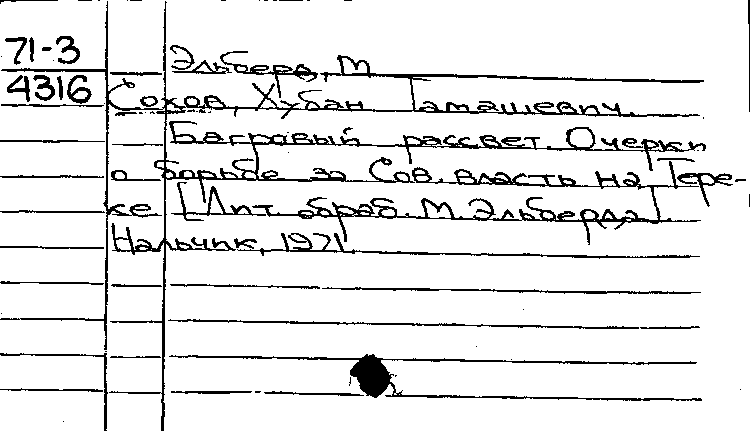 71-3
Эльберд, М
4316
Сохов, Хубан Тамашевич.
Багровый рассвет. Очерки
о борьбе за Сов. власть на Тере-
ке [Лит. обраб. М. Эльберда]
Нальчик, 1971.